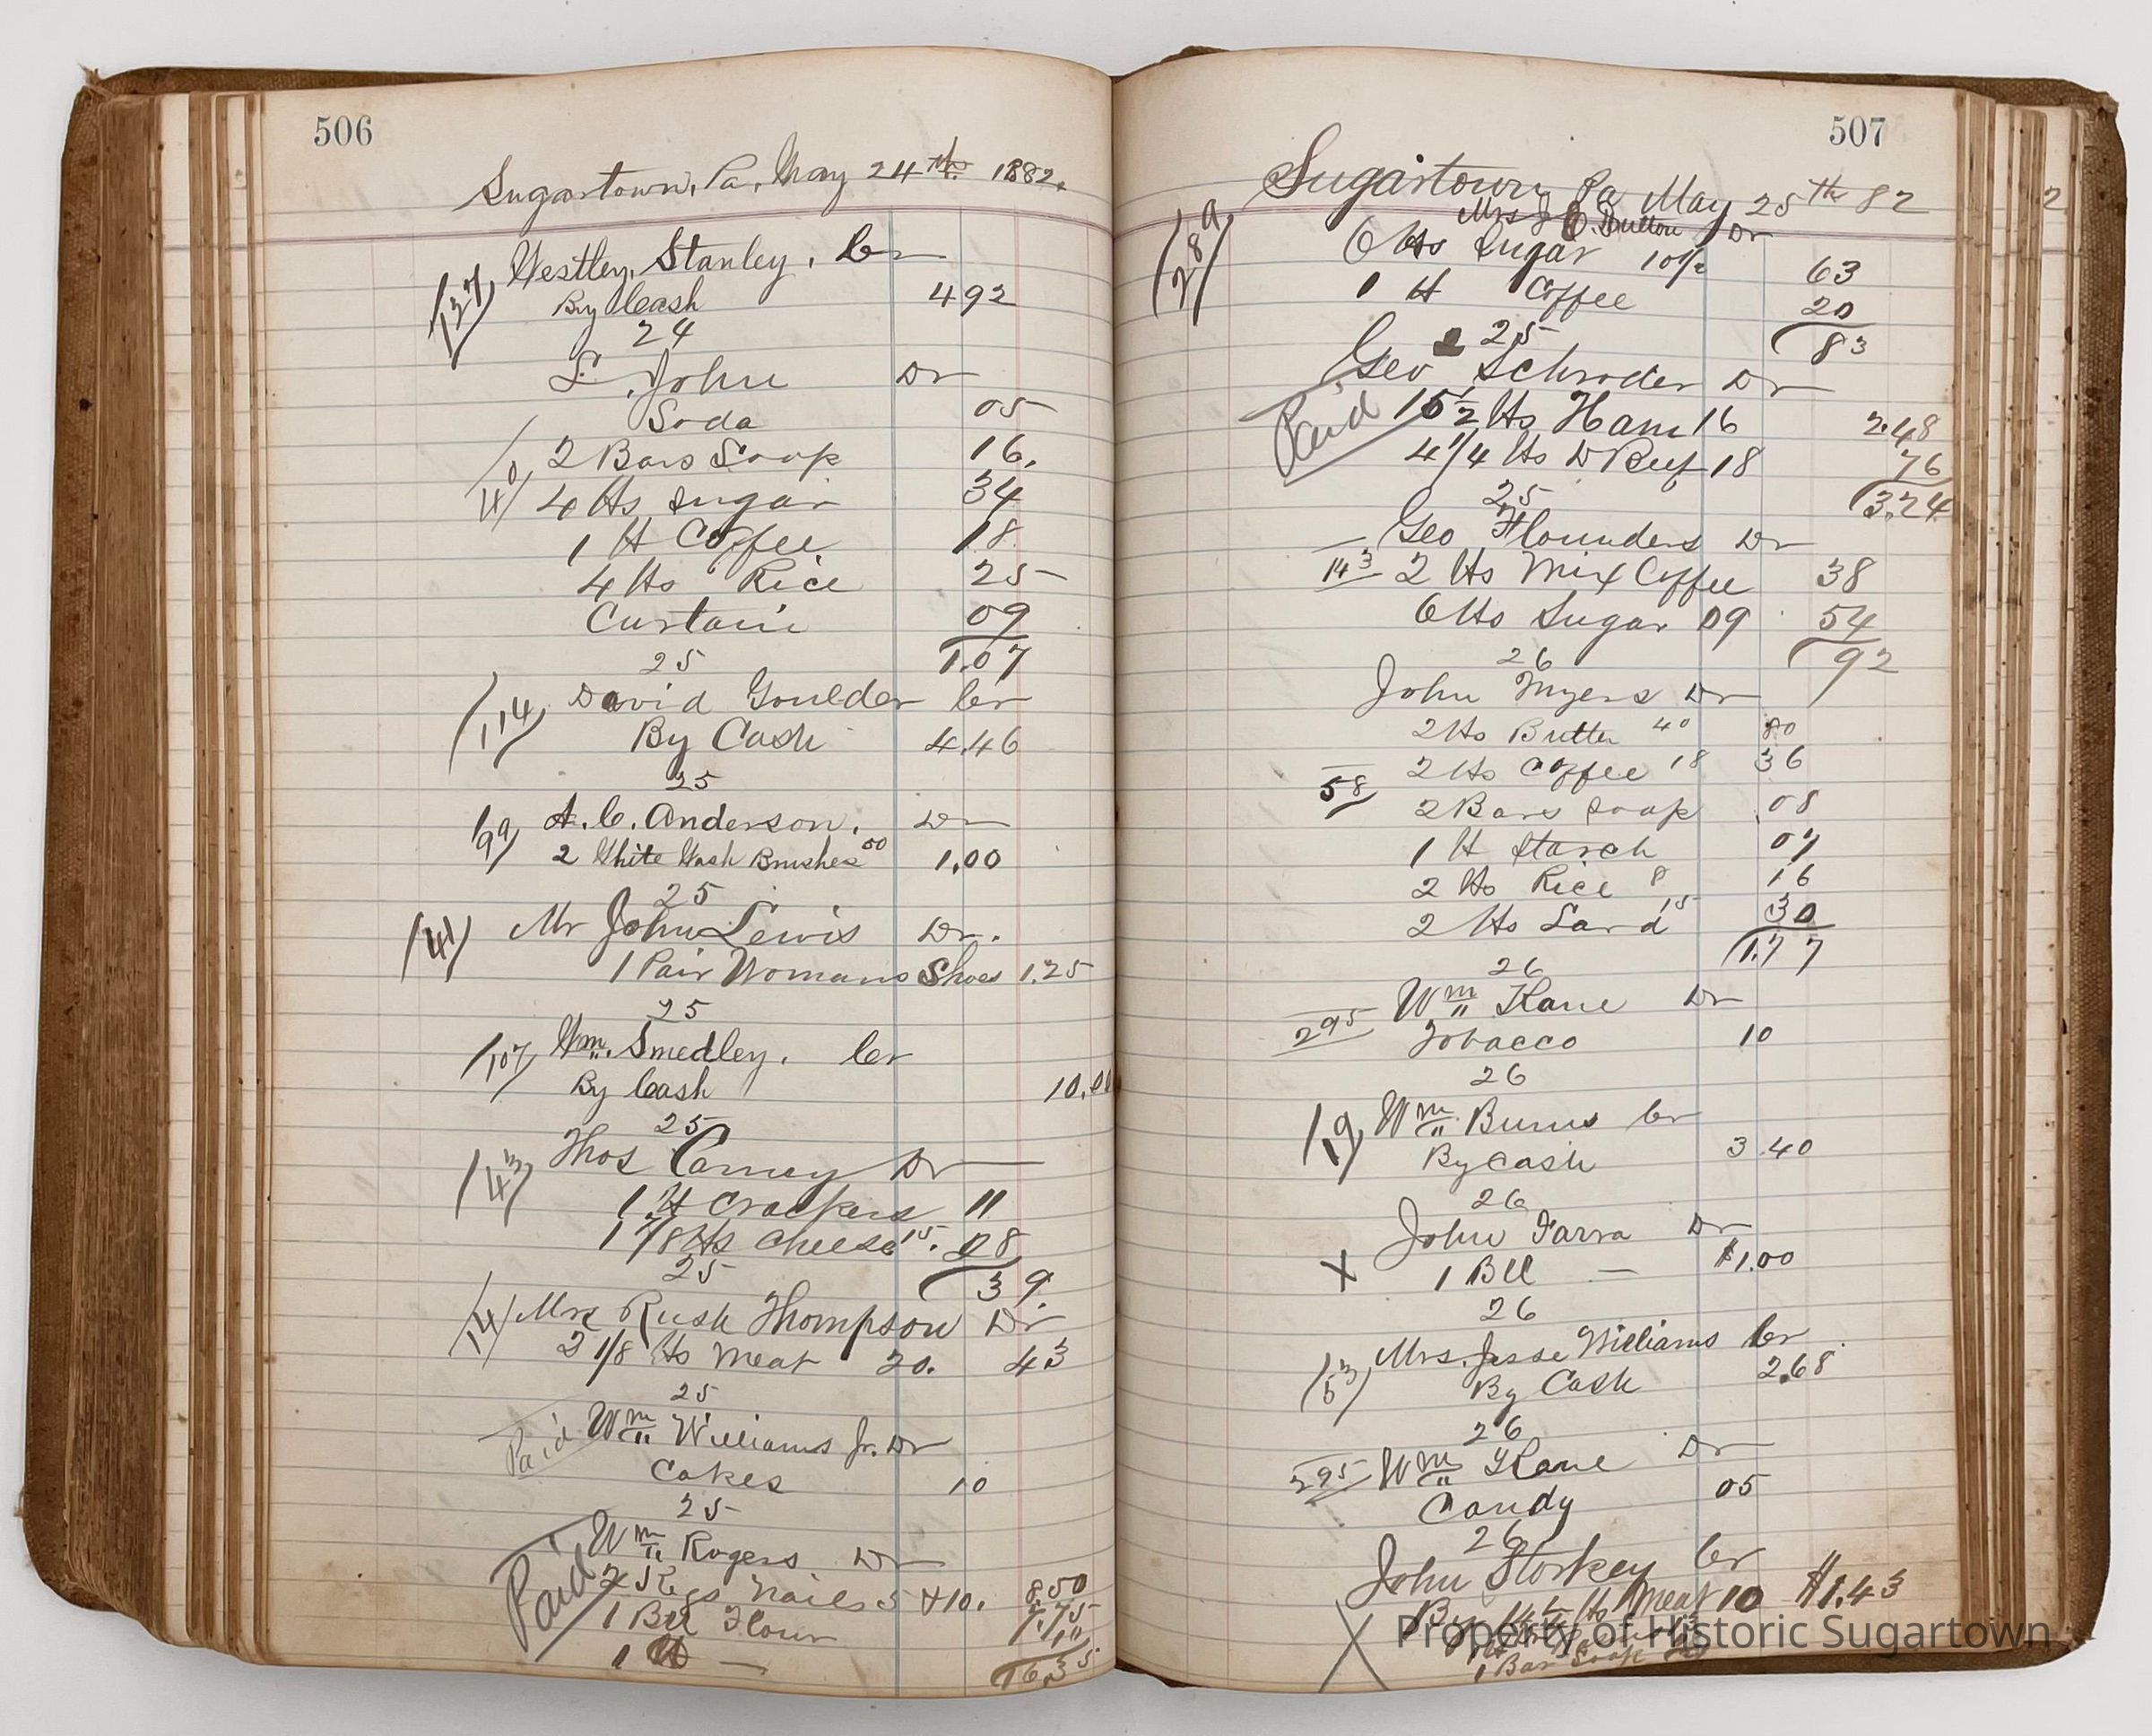 506
Sugartown, Pa, May 24th 1882.
/137/ Westley Stanley. Cr
By Cash 4 92
24
L. John Dr
Soda 05
2 Bars Soap 16.
4 lbs Sugar 34
1 lb Coffee 18
4 lbs Rice 25
Curtain 09
1.07
25
/114/ David Goulder Cr
By Cash 4.46
25
/99/ A. C. Anderson. Dr
2 White Wash Brushes 50 1.00
25
/41/ Mr John Lewis Dr.
1 Pair Womans Shoes 1.25
25
/107/ Wm. Smedley. Cr
By Cash 10.00
25
/43/ Thos Carney Dr
1 lb Crackers 11
1 7/8 lbs Cheese 15. 28
39.
25
/14/ Mrs Rush Thompson Dr
2 1/8 lbs Meat 20. 43
25
Paid Wm Williams Jr. Dr
Cakes 10
25
Paid Wm Rogers Dr
2 Kegs Nails 8.50
1 Bbl Flour 7.75
1
16.35
507
Sugartown, Pa May 25th 82
/289/ Mrs J. C. Dutton Dr
6 lbs Sugar 10 1/2 63
1 lb Coffee 20
83
25
Geo Schroder Dr
Paid 15 1/2 lbs Ham 16 2.48
4 1/4 lbs D Beef 18 76
3.24
25
Geo Flounders Dr
143 2 lbs Mix Coffee 38
6 lbs Sugar 09 54
92
26
John Myers Dr
2 lbs Butter 40 80
58 2 lbs Coffee 18 36
2 Bars Soap 08
1 lb Starch 07
2 lbs Rice 8 16
2 lbs Lard 15 30
1.77
26
Wm Kane Dr
295 Tobacco 10
26
/19/ Wm Burns Cr
By Cash 3.40
26
John Farra Dr
X 1 Bbl — $1.00
26
/53/ Mrs. Jesse Williams Cr
By Cash 2.68
26
295 Wm Kane Dr
Candy 05
26
John Storkey Cr
X By 14 lbs Meat 10 $1.43
1 Bar Soap
Property of Historic Sugartown